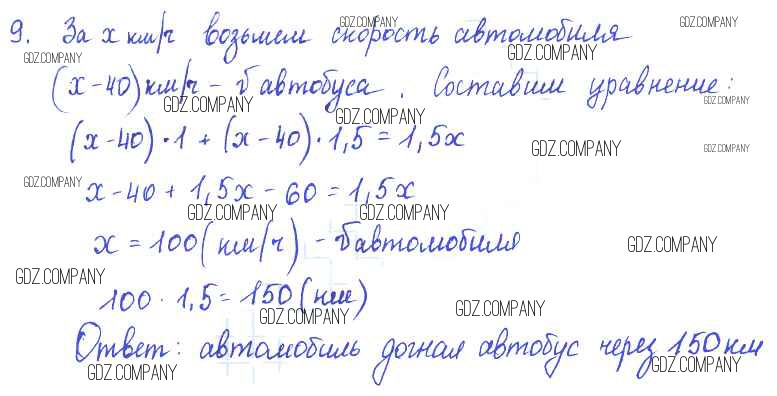 9. За x км/ч возьмем скорость автомобиля
(x-40) км/ч - v автобуса. Составим уравнение:
(x-40)·1 + (x-40)·1,5 = 1,5x
x-40 + 1,5x - 60 = 1,5x
x = 100 (км/ч) - v автомобиля
100 · 1,5 = 150 (км)
Ответ: автомобиль догнал автобус через 150 км
GDZ.COMPANY GDZ.COMPANY
GDZ.COMPANY GDZ.COMPANY
GDZ.COMPANY GDZ.COMPANY
GDZ.COMPANY
GDZ.COMPANY GDZ.COMPANY
GDZ.COMPANY
GDZ.COMPANY GDZ.COMPANY
GDZ.COMPANY
GDZ.COMPANY
GDZ.COMPANY GDZ.COMPANY
GDZ.COMPANY GDZ.COMPANY